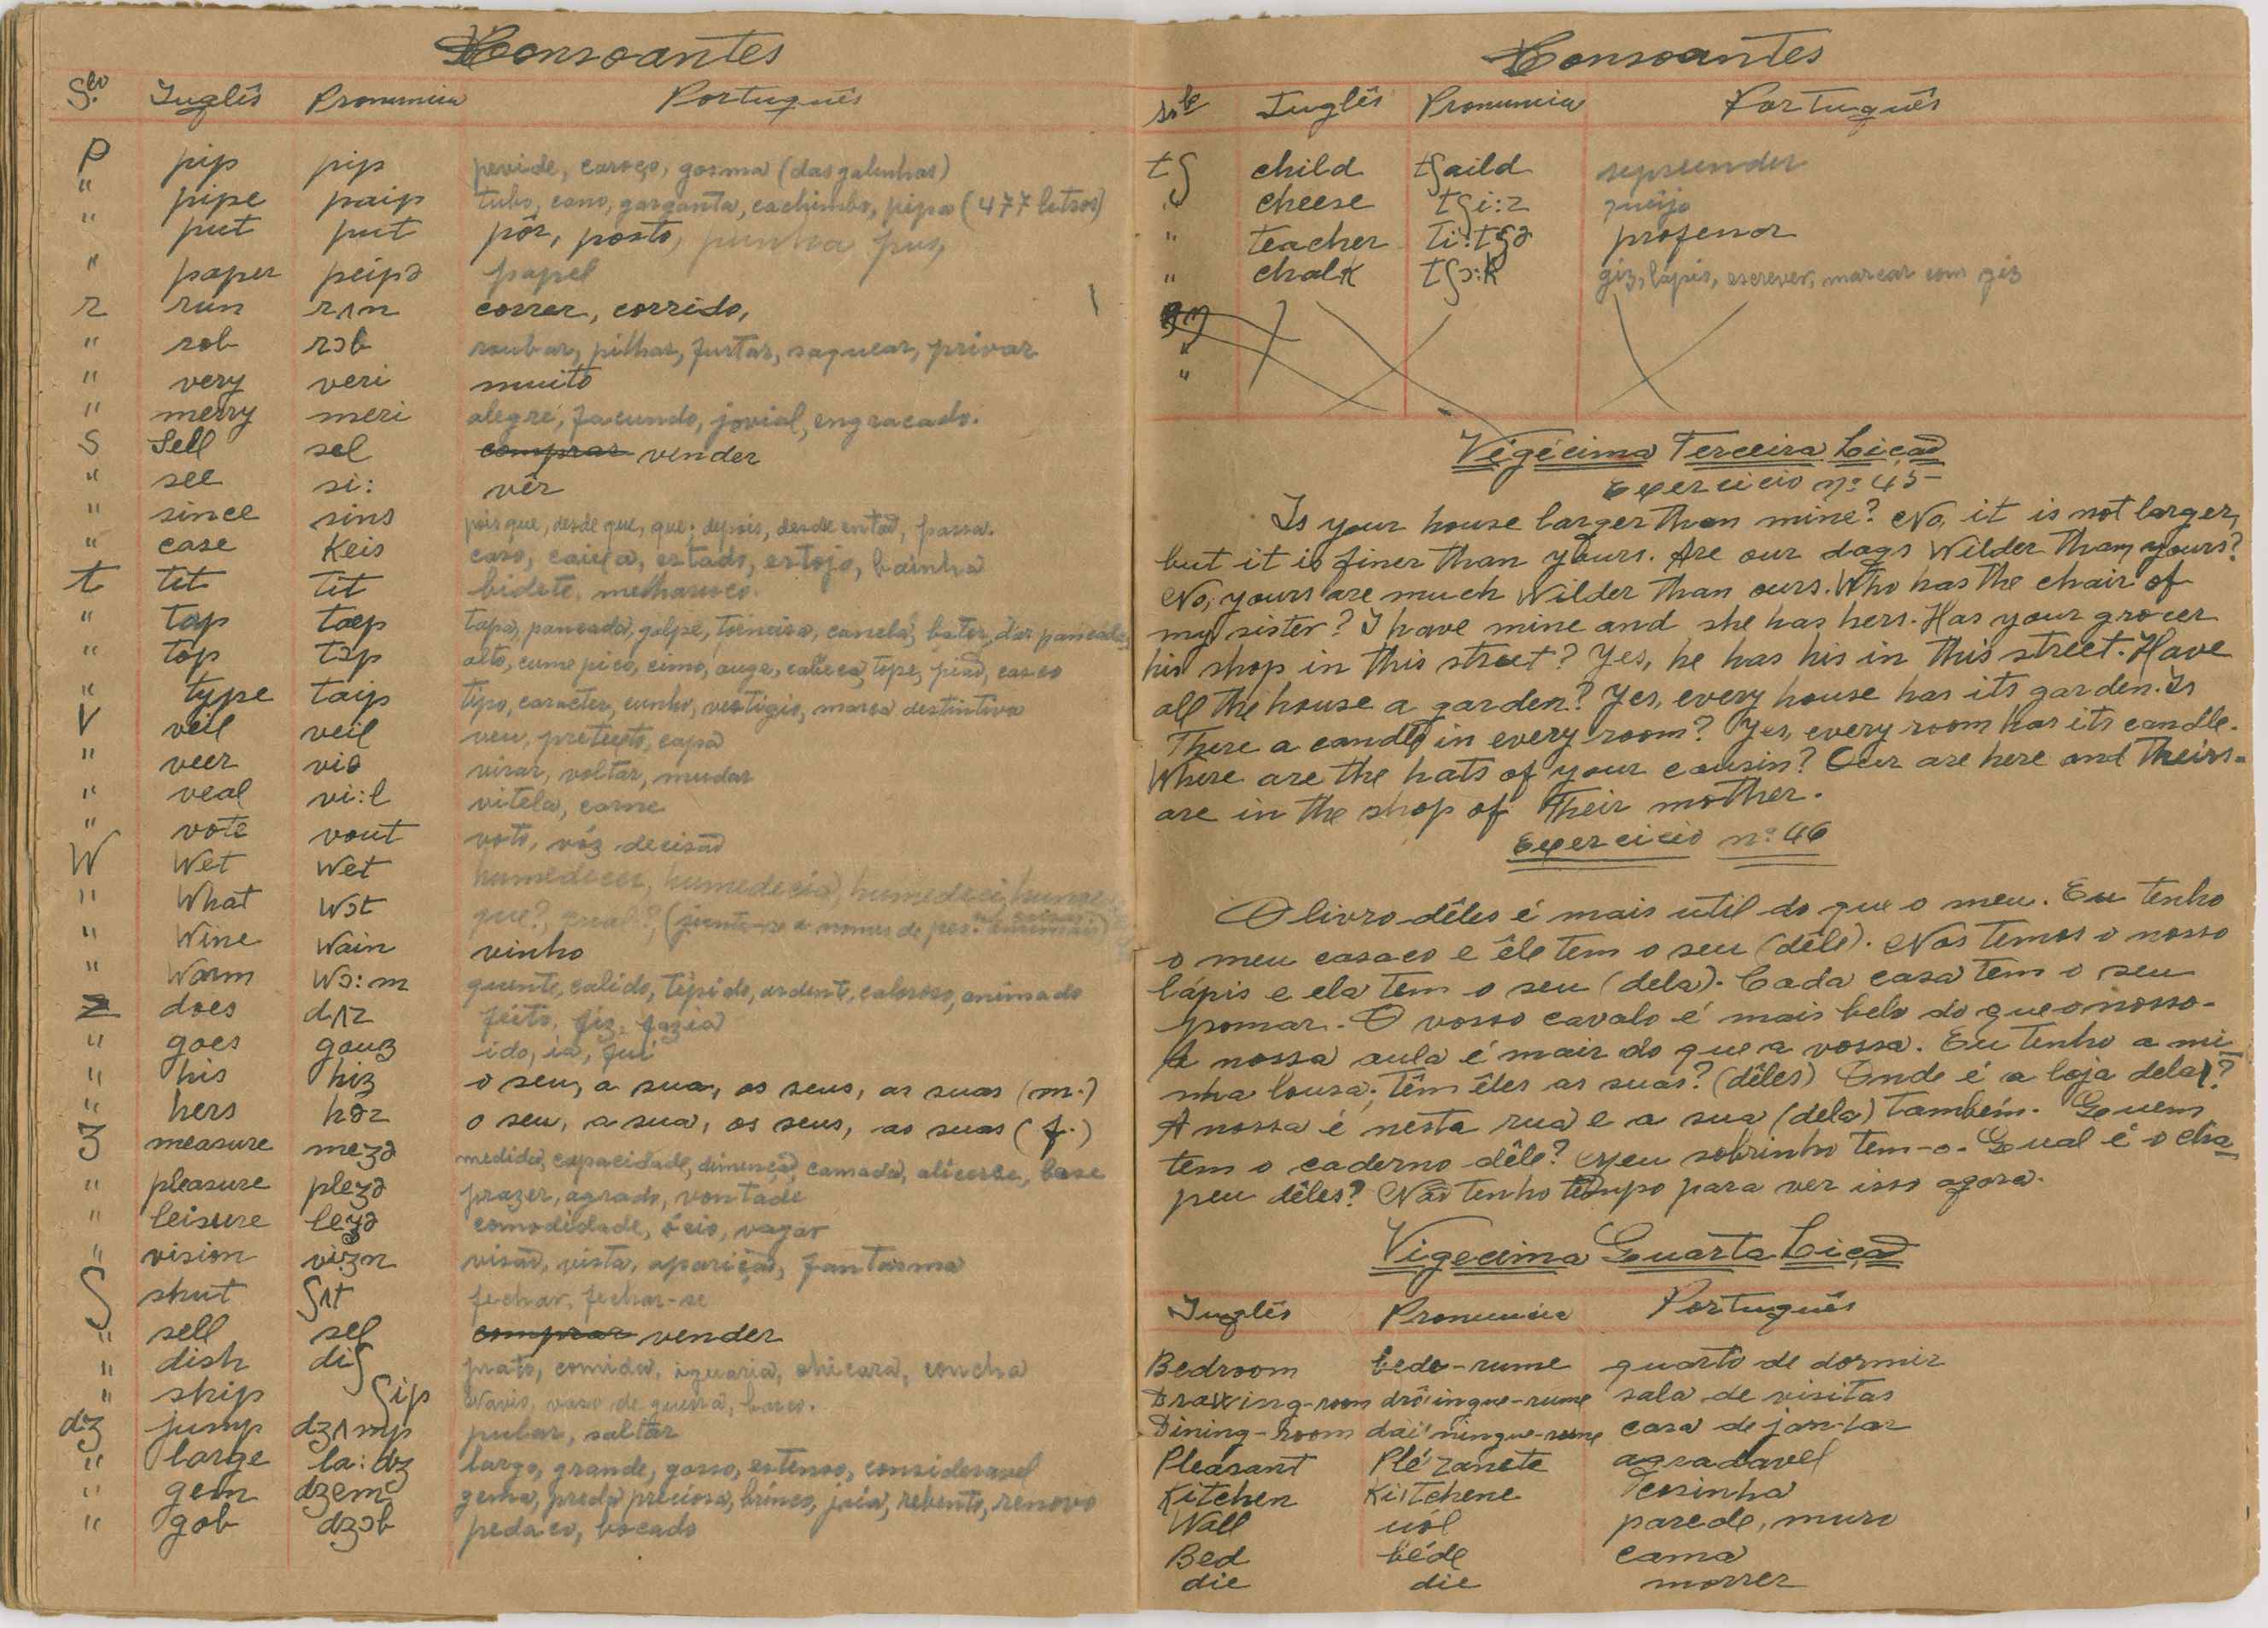 Consoantes
S.bo Inglês Pronuncia Português
p pip pip pevide, caroço, gosma (das galinhas)
" pipe paip tubo, cano, garganta, cachimbo, pipa (477 litros)
" put put pôr, posto, punha pus,
" paper peipə papel
r run rʌn correr, corrido,
" rob rɔb roubar, pilhar, furtar, saquear, privar
" very veri muito
" merry meri alegre, facundo, jovial, engraçado.
s Sell sel comprar vender
" see si: vêr
" since sins pois que, desde que, que; depois, desde então, passa.
" case Keis caso, caixa, estado, estojo, bainha
t tit tit bidete, melharuco.
" tap taep tapa, pancada, golpe, torneira, canela, bater, dar pancadas
" top tɔp alto, cume pico, cimo, auge, cabeça, tope, pião, casco
" type taip tipo, caracter, cunho, vestigio, marca destintiva
V veil veil veu, pretexto, capa
" veer viə virar, voltar, mudar
" veal vi:l vitela, carne
" vote vout voto, vóz decisão
W Wet Wet humedecer, humedecia, humedeci,
" What Wɔt que?, qual?, (junta-se a nomes de pes.
" Wine Wain vinho
" Warm Wɔ:m quente, calido, tépido, ardente, caloroso, animado
z does dʌz feito, fiz, fazia
" goes gouz ido, ia, fui
" his hiz o seu, a sua, os seus, as suas (m.)
" hers həz o seu, a sua, os seus, as suas (f.)
ʒ measure meʒə medida, capacidade, dimensão, camada, alicerce, base
" pleasure pleʒə prazer, agrado, vontade
" leisure leʒə comodidade, ócio, vagar
" vision viʒn visão, vista, aparição, fantasma
ʃ shut ʃʌt fechar, fechar-se
" sell sel comprar vender
" dish diʃ prato, comida, iguaria, chicara, concha
" ship ʃip Navio, vaso de guerra, barco.
dʒ jump dʒʌmp pular, saltar
" large la:dʒ largo, grande, gosso, extenso, consideravel
" gem dʒem gema, preda preciosa, brinco, joia, rebento, renovo
" gob dʒɔb pedaco, bocado
Consoantes
Inglês Pronuncia Português
tʃ child tʃaild
" cheese tʃi:z queijo
" teacher Ti:tʃə professor
" chalk tʃɔ:k giz, lápis, escrever, marcar com giz
"
"
Vigécima Terceira Lição
Exercicio nº 45
Is your house larger than mine? No, it is not larger,
but it is finer than yours. Are our dogs Wilder than yours?
No, yours are much Wilder than ours. Who has the chair of
my sister? I have mine and she has hers. Has your grocer
his shop in this street? Yes, he has his in this street. Have
all the house a garden? Yes, every house has its garden. Is
There a candle in every room? Yes, every room has its candle.
Where are the hats of your cousin? Our are here and theirs
are in the shop of their mother.
Exercicio nº 46
O livro dêles é mais util do que o meu. Eu tenho
o meu casaco e êle tem o seu (dêle). Nós temos o nosso
lápis e ela tem o seu (dela). Cada casa tem o seu
pomar. O vosso cavalo é mais belo do que o nosso.
A nossa aula é mair do que a vossa. Eu tenho a mi
nha lousa; têm êles as suas? (dêles) Onde é a loja delas?
A nossa é nesta rua e a sua (dela) também. Quem
tem o caderno dêle? Meu sobrinho tem-o. Qual é o cha
peu dêles? Não tenho tempo para ver isso agora.
Vigecima Quarta Lição
Inglês Pronuncia Português
Bedroom bede-rume quarto de dormir
Drawing-room drôingue-rume sala de visitas
Dining-room dai'ningue-rume casa de jantar
Pleasant Plé'zanete agradavel
Kitchen Ki'tchene Cosinha
Wall uól parede, muro
Bed béde cama
die die morrer